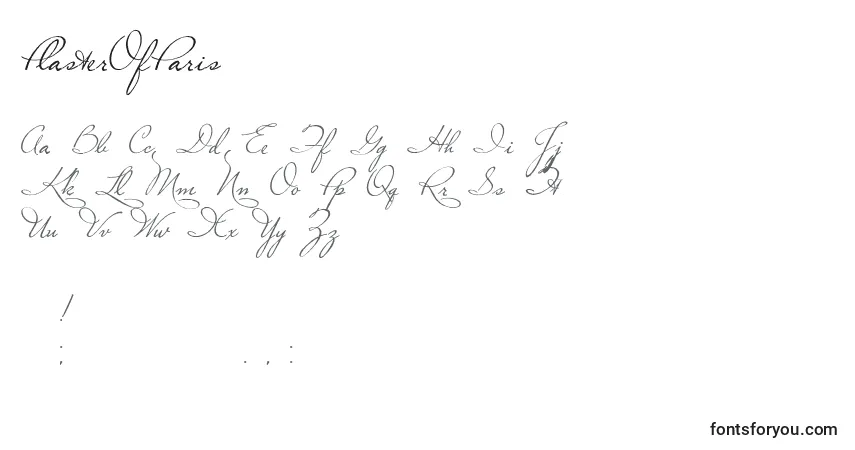 PlasterOfParis
Aa Bb Cc Dd Ee Ff Gg Hh Ii Jj
Kk Ll Mm Nn Oo Pp Qq Rr Ss Tt
Uu Vv Ww Xx Yy Zz
!
; . , :
fontsforyou.com